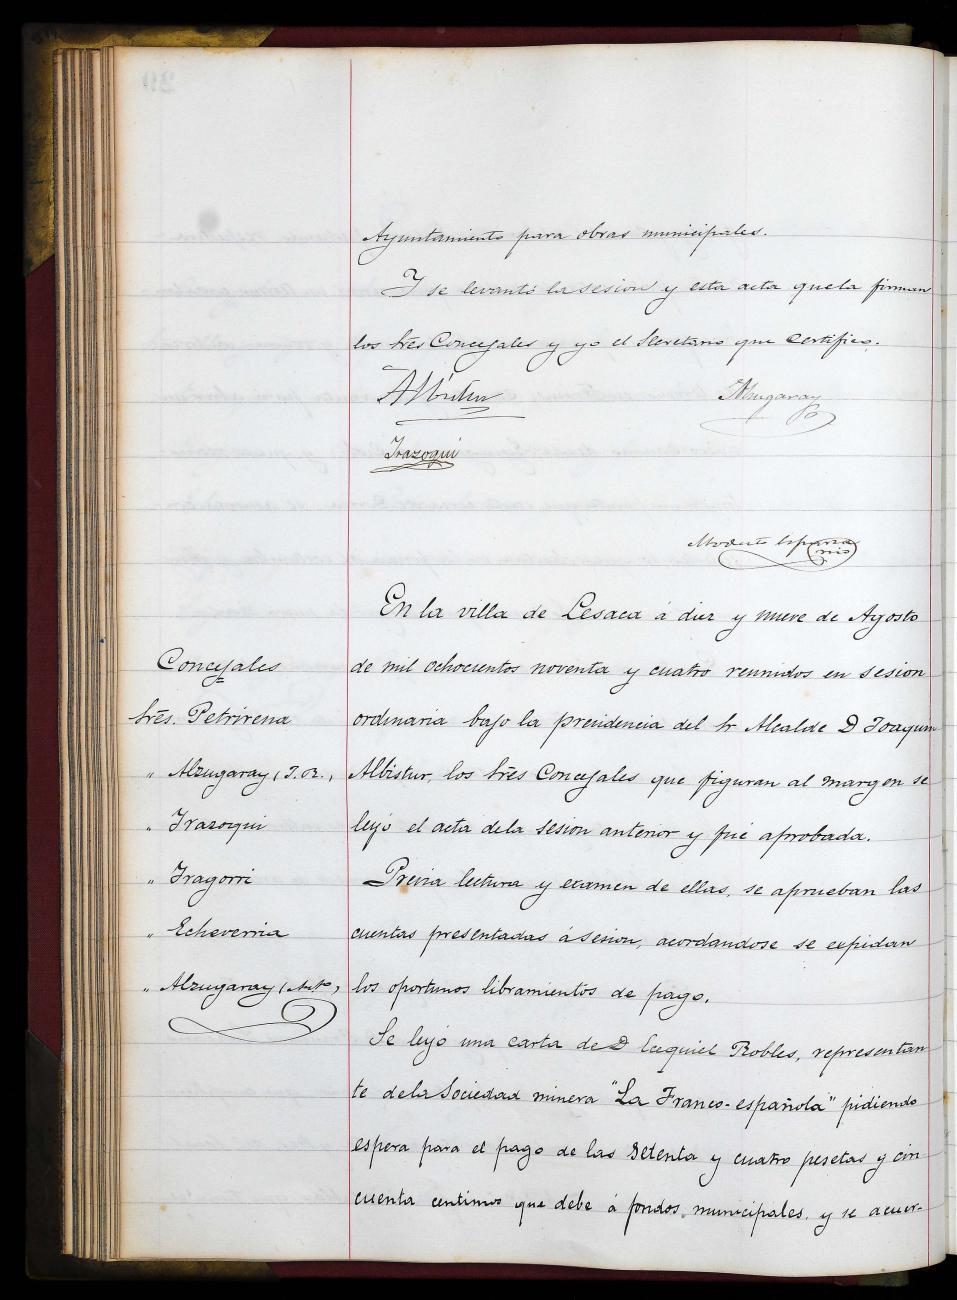 Ayuntamiento para obras municipales.
Y se levantó la sesion y esta acta que la firman
los Sres Concejales y yo el Secretario que certifico.
Albistur
Alzugaray
Irazoqui
Modesto Esparza
En la villa de Lesaca á diez y nueve de Agosto
de mil ochocientos noventa y cuatro reunidos en sesion
ordinaria bajo la presidencia del Sr Alcalde D Joaquin
Albistur, los Sres Concejales que figuran al margen se
leyó el acta de la sesion anterior y fué aprobada.
Previa lectura y examen de ellas, se aprueban las
cuentas presentadas á sesion, acordandose se expidan
los oportunos libramientos de pago.
Se leyó una carta de D Ezequiel Robles, representan
te de la Sociedad minera "La Franco-española" pidiendo
espera para el pago de las setenta y cuatro pesetas y cin
cuenta centimos que debe á fondos municipales, y se acuer-
Concejales
Sres. Petrirena
" Alzugaray (J. M.)
" Irazoqui
" Iragorri
" Echeverria
" Alzugaray (Anto)